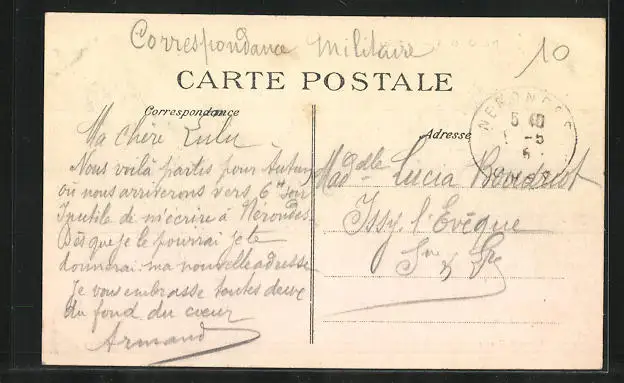 Correspondance Militaire
10
CARTE POSTALE
Correspondance
Adresse
NERONDES
Ma chère Lulu
Nous voilà partis pour Autun
où nous arriverons vers 6h soir
Inutile de m'écrire à Nérondes.
Dès que je le pourrai je te
donnerai ma nouvelle adresse
Je vous embrasse toutes deux
du fond du coeur
Armand
Madelle Lucia
Issy l'Evêque
Sne & Lre